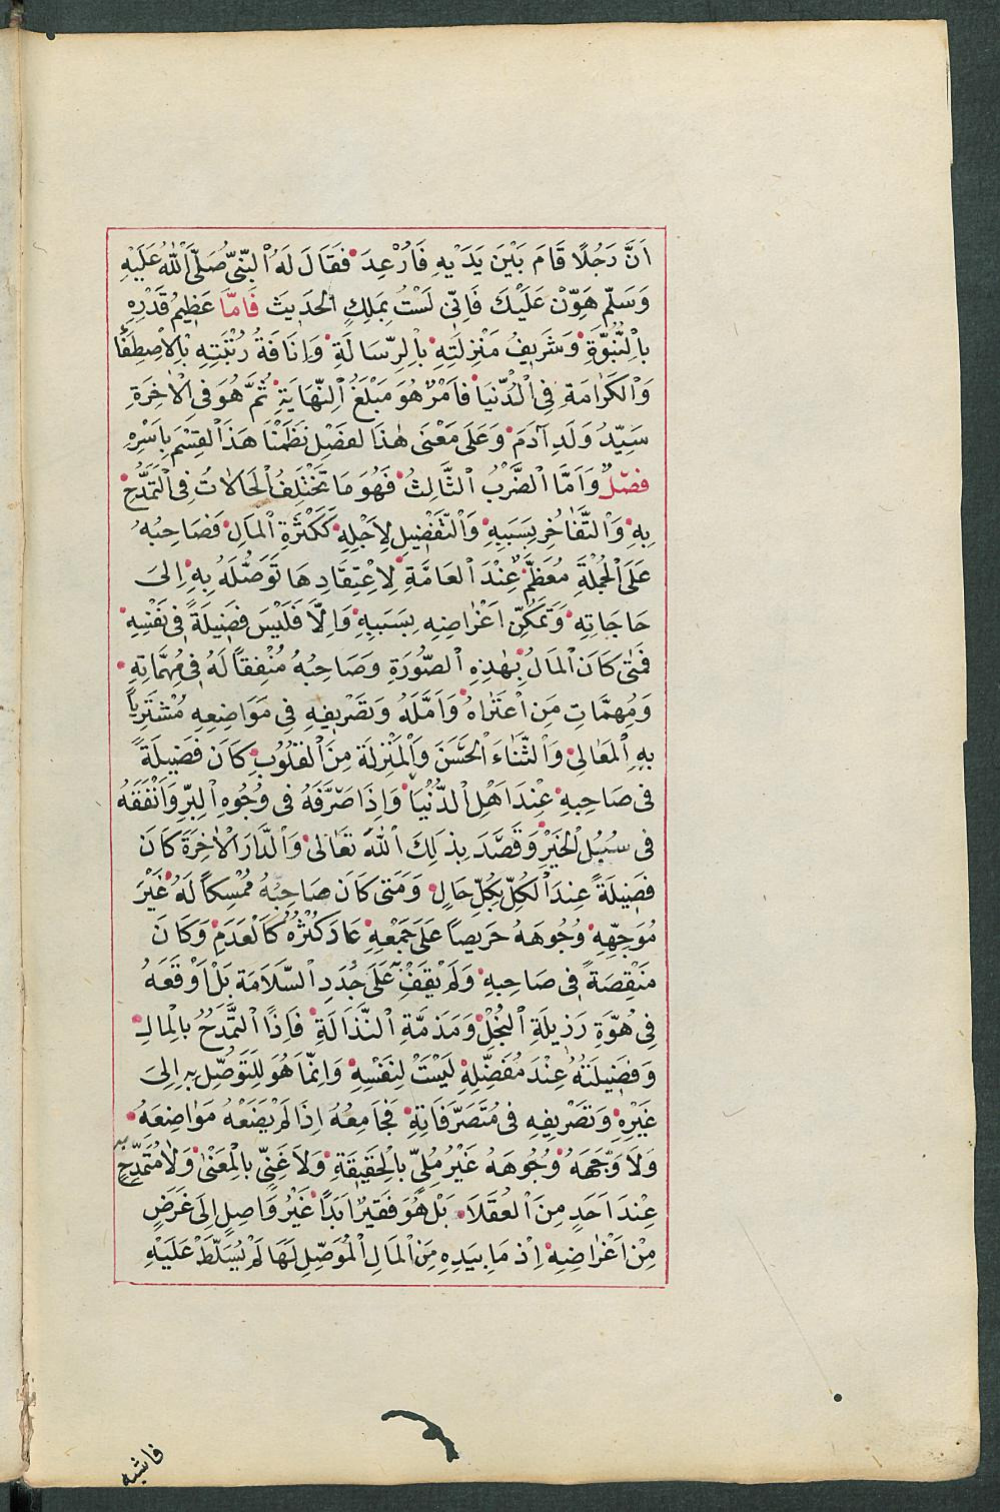 اَنَّ رَجُلًا قَامَ بَيْنَ يَدَيْهِ فَاُرْعِدَ فَقَالَ لَهُ النَّبِيُّ صَلَّى اللّٰهُ عَلَيْهِ
وَسَلَّم هَوِّنْ عَلَيْكَ فَاِنِّى لَسْتُ بِمَلِكٍ الْحَدِيثَ فَاَمَّا عَظِيمُ قَدْرِهِ
بِالنُّبُوَّةِ وَشَرِيفُ مَنْزِلَتِهِ بِالرِّسَالَةِ وَاِنَافَةُ رُتْبَتِهِ بِالْاِصْطِفَاءِ
وَالْكَرَامَةِ فِى الدُّنْيَا فَاَمْرٌ هُوَ مَبْلَغُ النِّهَايَةِ ثُمَّ هُوَ فِى الْاٰخِرَةِ
سَيِّدُ وَلَدِ آدَمَ وَعَلَى مَعْنَى هٰذَا لفَضْلِ نَظَمْنَا هَذَا لقِسْمَ بِاَسْرِهِ
فصْلٌ وَاَمَّا الضَّرْبُ الثَّالِثُ فَهُوَ مَا تَخْتَلِفُ الْحَالَاتُ فِى التَّمَدُّحِ
بِهِ وَالتَّفَاخُرِ بِسَبَبِهِ وَالتَّفْضِيلِ لِاَجْلِهِ كَكَثْرَةِ الْمَالِ فَصَاحِبُهُ
عَلَى الْجُمْلَةِ مُعَظَّمٌ عِنْدَ الْعَامَّةِ لِاعْتِقَادِهَا تَوَصُّلَهُ بِهِ اِلىَ
حَاجَاتِهِ وَتَمَكُّنِ اَغْرَاضِهِ بِسَبَبِهِ وَاِلَّا فَلَيْسَ فَضِيلَةً فِى نَفْسِهِ
فَمَتٰى كَانَ الْمَالُ بِهٰذِهِ الصُّورَةِ وَصَاحِبُهُ مُنْفِقاً لَهُ فِى مُهِمَّاتِهِ
وَمُهِمَّاتِ مَن اعْتَرَاهُ وَاَمَّلَهُ وَتَصْرِيفِهِ فِى مَوَاضِعِهِ مُشْتَرِياً
بِهِ الْمَعَالِىَ وَالثَّنَاءَ الْحَسَنَ وَالْمَنْزِلَةَ مِنَ الْقُلُوبِ كَانَ فَضِيلَةً
فى صَاحِبِهِ عِنْدَ اَهْلِ الدُّنْيَا وَاِذَا صَرَّفَهُ فى وُجُوهِ الْبِرِّ وَاَنْفَقَهُ
فى سُبُلِ الْخَيْرِ وَقَصَدَ بِذٰلِكَ اللّٰهَ تَعَالىٰ وَالدَّارَ الْاٰخِرَةَ كَانَ
فَضِيلَةً عِنْدَ الْكُلِّ بِكُلِّ حَالٍ وَمَتىٰ كَانَ صَاحِبُهُ مُمْسِكاً لَهُ غَيْرَ
مُوَجِّهِهِ وُجُوهَهُ حَرِيصًا عَلَى جَمْعِهِ عَادَ كُثْرُهُ كَالْعَدَمِ وَكَانَ
مَنْقِصَةً فِى صَاحِبِهِ وَلَمْ يَقِفْ عَلَى جُدَدِ السَّلَامَةِ بَلْ اَوْقَعَهُ
فِى هُوَّةِ رَزِيلَةِ الْبُخْلِ وَمَذَمَّةِ النَّذَالَةِ فَاِذًا التَّمَدُّحُ بِالْمَالِ
وَفَضِيلَتُهُ عِنْدَ مُفَضِّلِهِ لَيْسَتْ لِنَفْسِهِ وَاِنَّمَا هُوَ لِلتَّوَصُّلِ بِهِ اِلىَ
غَيْرِهِ وَتَصْرِيفِهِ فى مُتَصَرَّفَاتِهِ فَجَامِعُهُ اِذَا لَمْ يَضَعْهُ مَوَاضِعَهُ
وَلَا وَجَّهَهُ وُجُوهَهُ غَيْرُ مَلِىٍّ بِالْحَقِيقَةِ وَلَا غَنِىٍّ بِالْمَعْنٰى وَلَا مُتَمَدَّحٍ
عِنْدَ اَحَدٍ مِنَ الْعُقَلَاءِ بَلْ هُوَ فَقِيرٌ اَبَدًا غَيْرُ وَاصِلٍ اِلَى غَرَضٍ
مِنْ اَغْرَاضِهِ اِذْ مَا بِيَدِهِ مِنَ الْمَالِ الْمُوَصِّلِ لَهَا لَمْ يُسَلَّطْ عَلَيْهِ
فاشبه